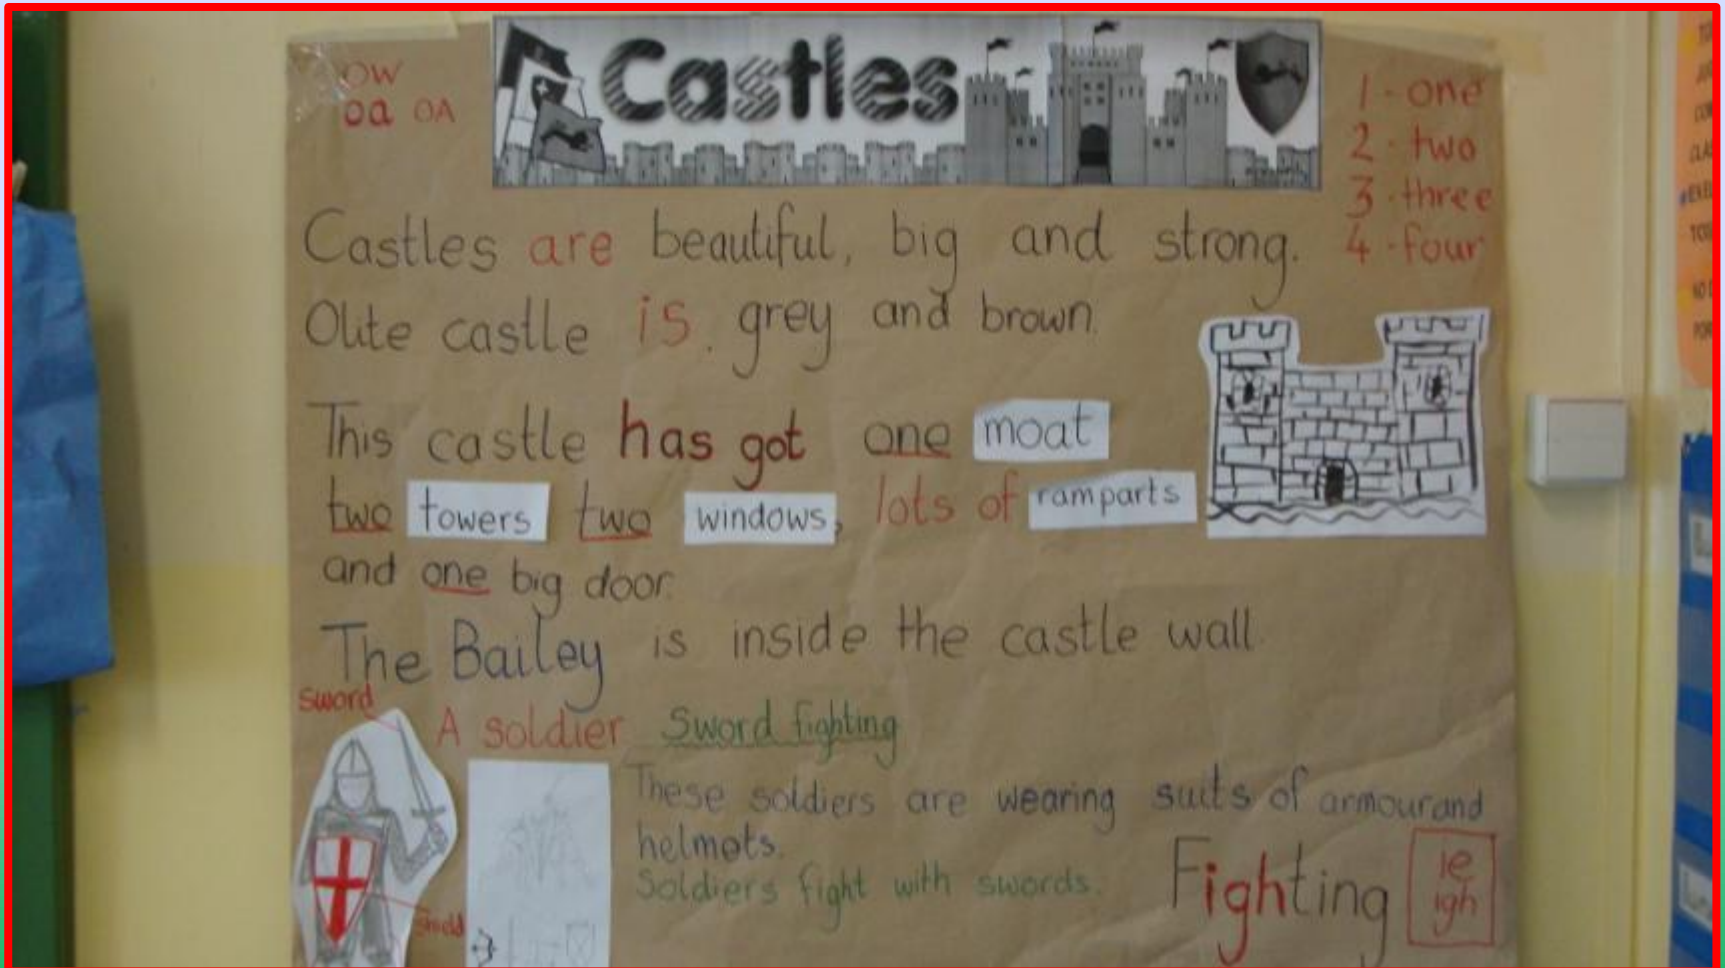 Castles
ow
oa OA
1 - one
2 - two
3 - three
4 - four
Castles are beautiful, big and strong.
Olite castle is. grey and brown.
This castle has got one moat
two towers two windows, lots of ramparts
and one big door.
The Bailey is inside the castle wall.
sword
A soldier Sword fighting
These soldiers are wearing suits of armour and
helmets.
Soldiers fight with swords.
Fighting
ie
igh
shield